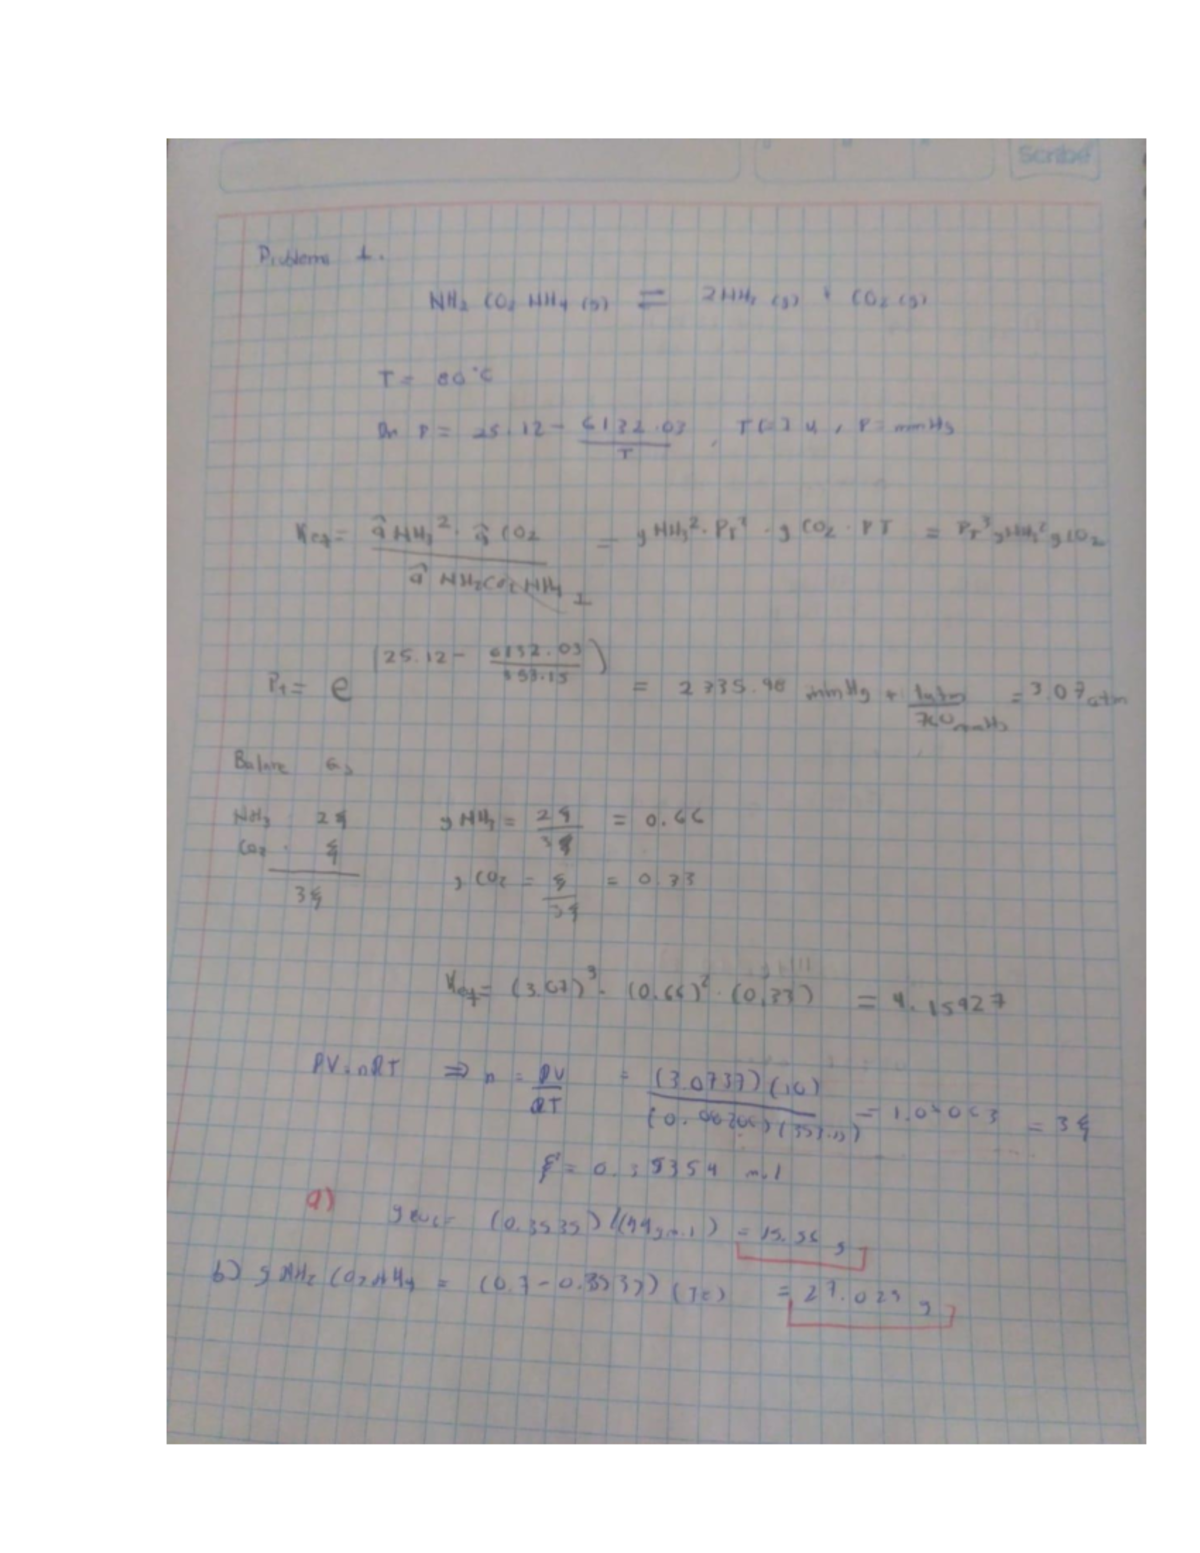 Scribe
Problema 1.
NH2 CO2 NH4 (g) ⇌ 2NH3 (g) + CO2 (g)
T = 80°C
ln P = 25.12 - 6132.03/T , T[=] K , P = mmHg
Keq = âNH3² · âCO2 / âNH2CO2NH4 = yNH3² · PT² · yCO2 · PT = PT³ yNH3² yCO2
1
PT = e^(25.12 - 6132.03/353.15) = 2335.98 mmHg * 1atm/760mmHg = 3.07 atm
NH3 2ξ yNH3 = 2ξ/3ξ = 0.66
CO2 ξ
3ξ yCO2 = ξ/3ξ = 0.33
Keq = (3.07)³ · (0.66)² · (0.33) = 4.15927
PV=nRT ⇒ n = PV/RT = (3.0737)(10)/(0.08206)(353.15) = 1.06063 = 3ξ
ξ = 0.35354 mol
a) gCO2 = (0.3535)(44g/mol) = 15.56 g
b) g NH2CO2NH4 = (0.7-0.3535)(78) = 27.029 g